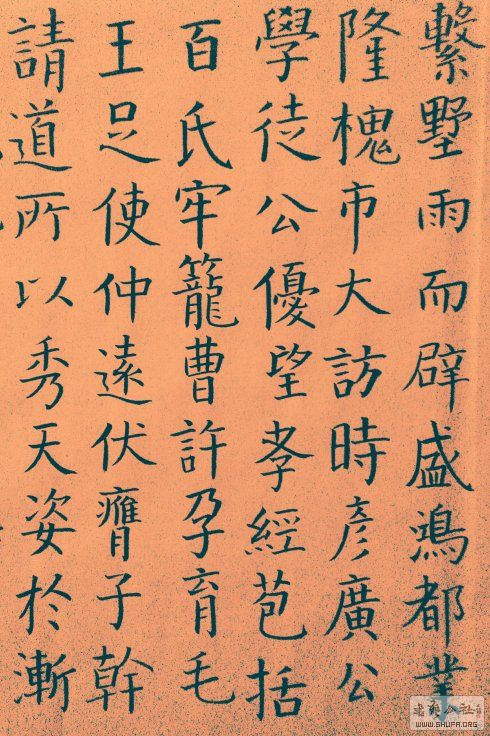 繫墅雨而辟盛鴻都業
隆槐市大訪時彥廣公
學徒公優望孝經苞括
百氏牢籠曹許孕育毛
王足使仲遠伏膺子幹
請道所以秀天姿於漸
WWW.SHUFA.ORG